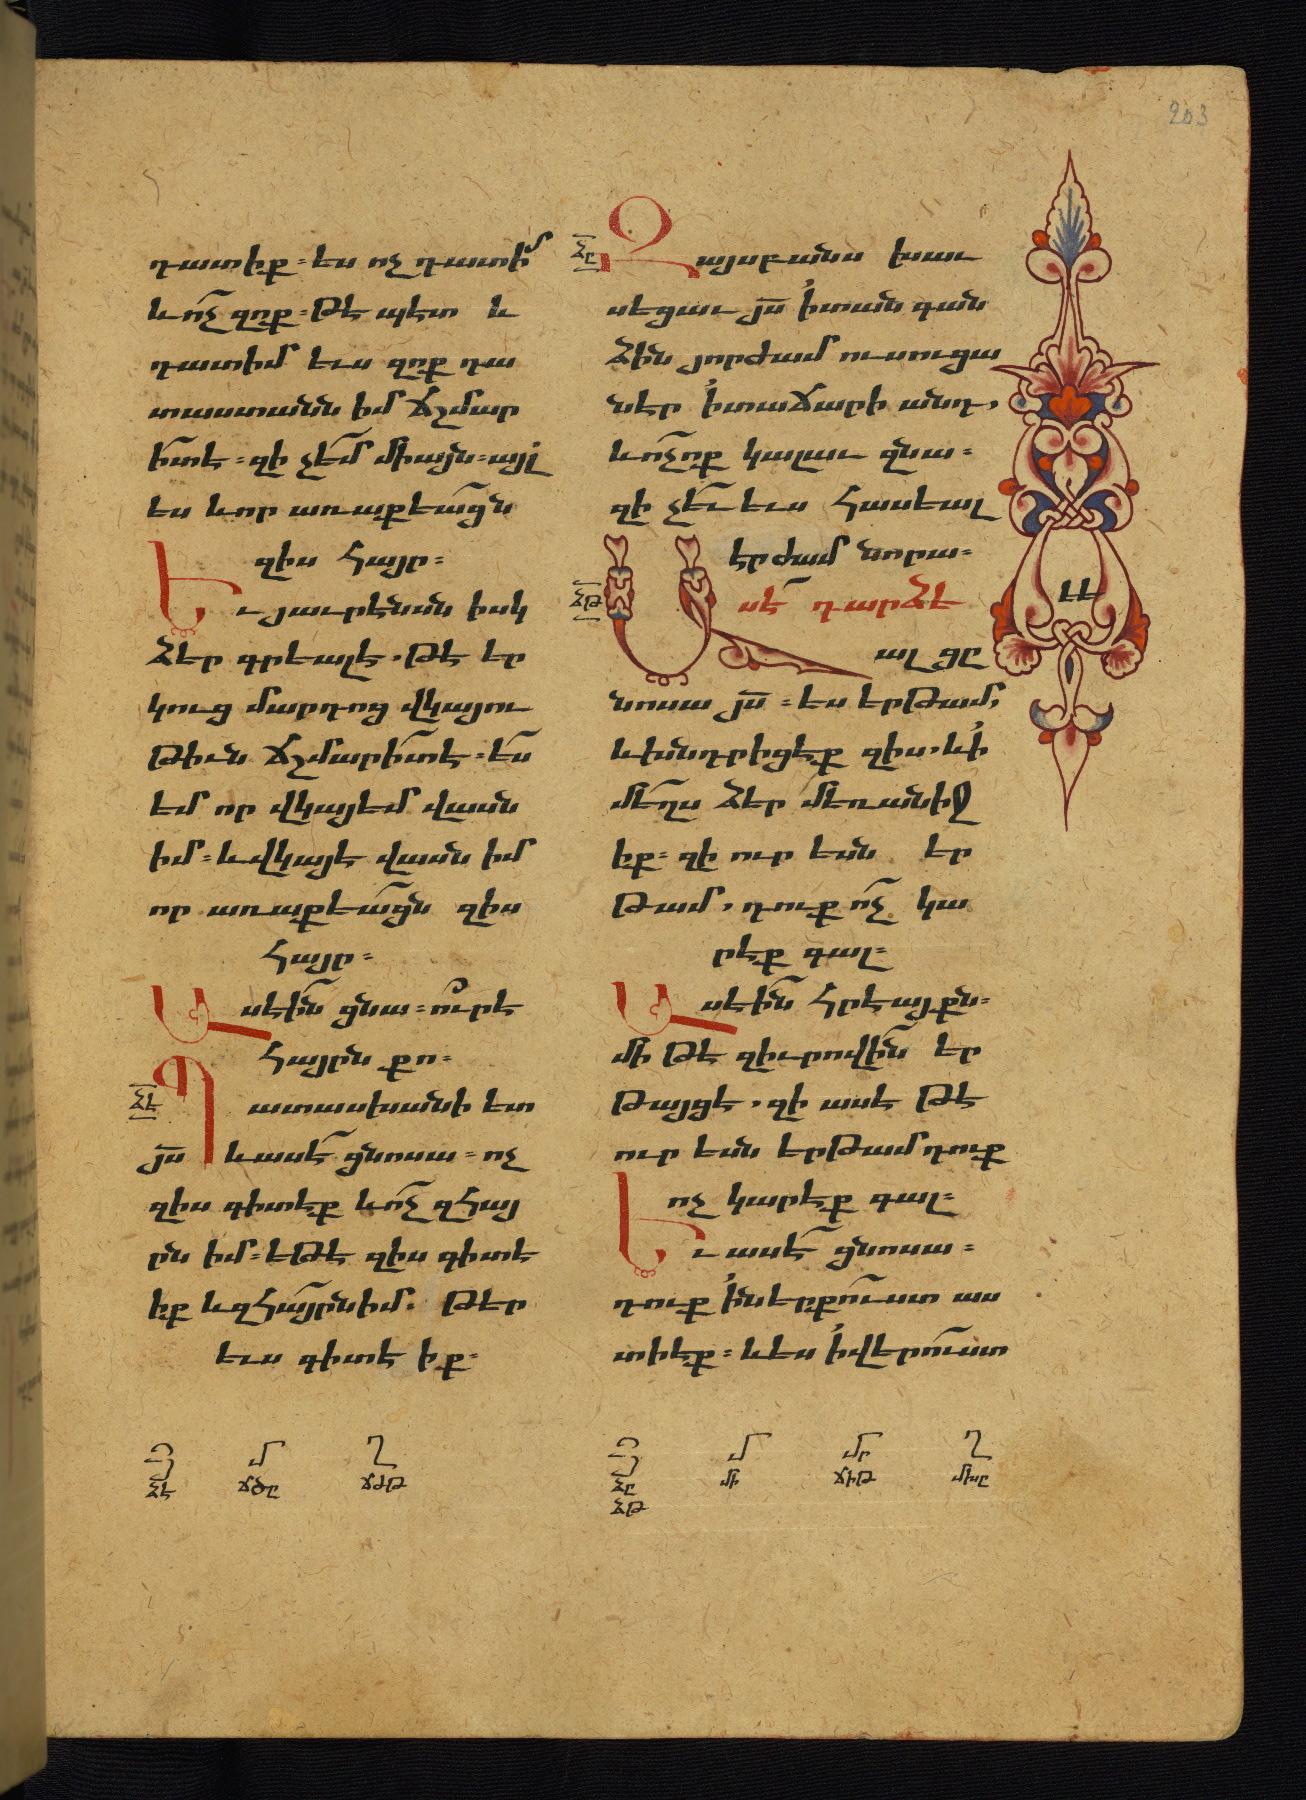 203
դատիք։ ես ոչ դատիմ
և ոչ զոք։ թէ պետ և
դատիմ եւս զոք դա
տաստանն իմ ճշմար
իտ է։ զի չեմ միայն։ այլ
ես և որ առաքեացն
զիս հայր։
Եւ յաւրէնսն իսկ
ձեր գրեալ է. թէ եր
կուց մարդոց վկայու
թիւն ճշմարիտ է։ ես
եմ որ վկայեմ վասն
իմ։ և վկայէ վասն իմ
որ առաքեացն զիս
հայր։
Ասեն ցնա։ ուր է
հայրն քո։
ձէ
Պատասխանի ետ
յս և ասէ ցնոսա։ ոչ
զիս գիտէք և ոչ զհայ
րն իմ։ եթէ զիս գիտէ
իք և զհայրն իմ. թեր
եւս գիտէ իք։
ձը
Զայս բանս խաւ
սեցաւ յս ի տան գան
ձին յորժամ ուսուցա
նէր ի տաճարի անդ,
և ոչ ոք կալաւ զնա։
զի չև եւս հասեալ
էր ժամ նորա։
ձթ
Ասէ դարձե
ալ ցը
նոսա յս։ ես երթամ,
և խնդրիցէք զիս, և ի
մեղս ձեր մեռանիջ
իք։ զի ուր եսն եր
թամ, դուք ոչ կա
րէք գալ։
Ասեն հրեայքն։
մի թէ զիւրովին եր
թայցէ, զի ասէ թէ
ուր եսն երթամ դուք
ոչ կարէք գալ։
Եւ ասէ ցնոսա։
դուք ի ներքուստ աս
տի էք։ և ես ի վերուստ
Յ մ Ղ
ձէ ճծը
Յ մ մր Ղ
ձը մի ճիթ
ձթ